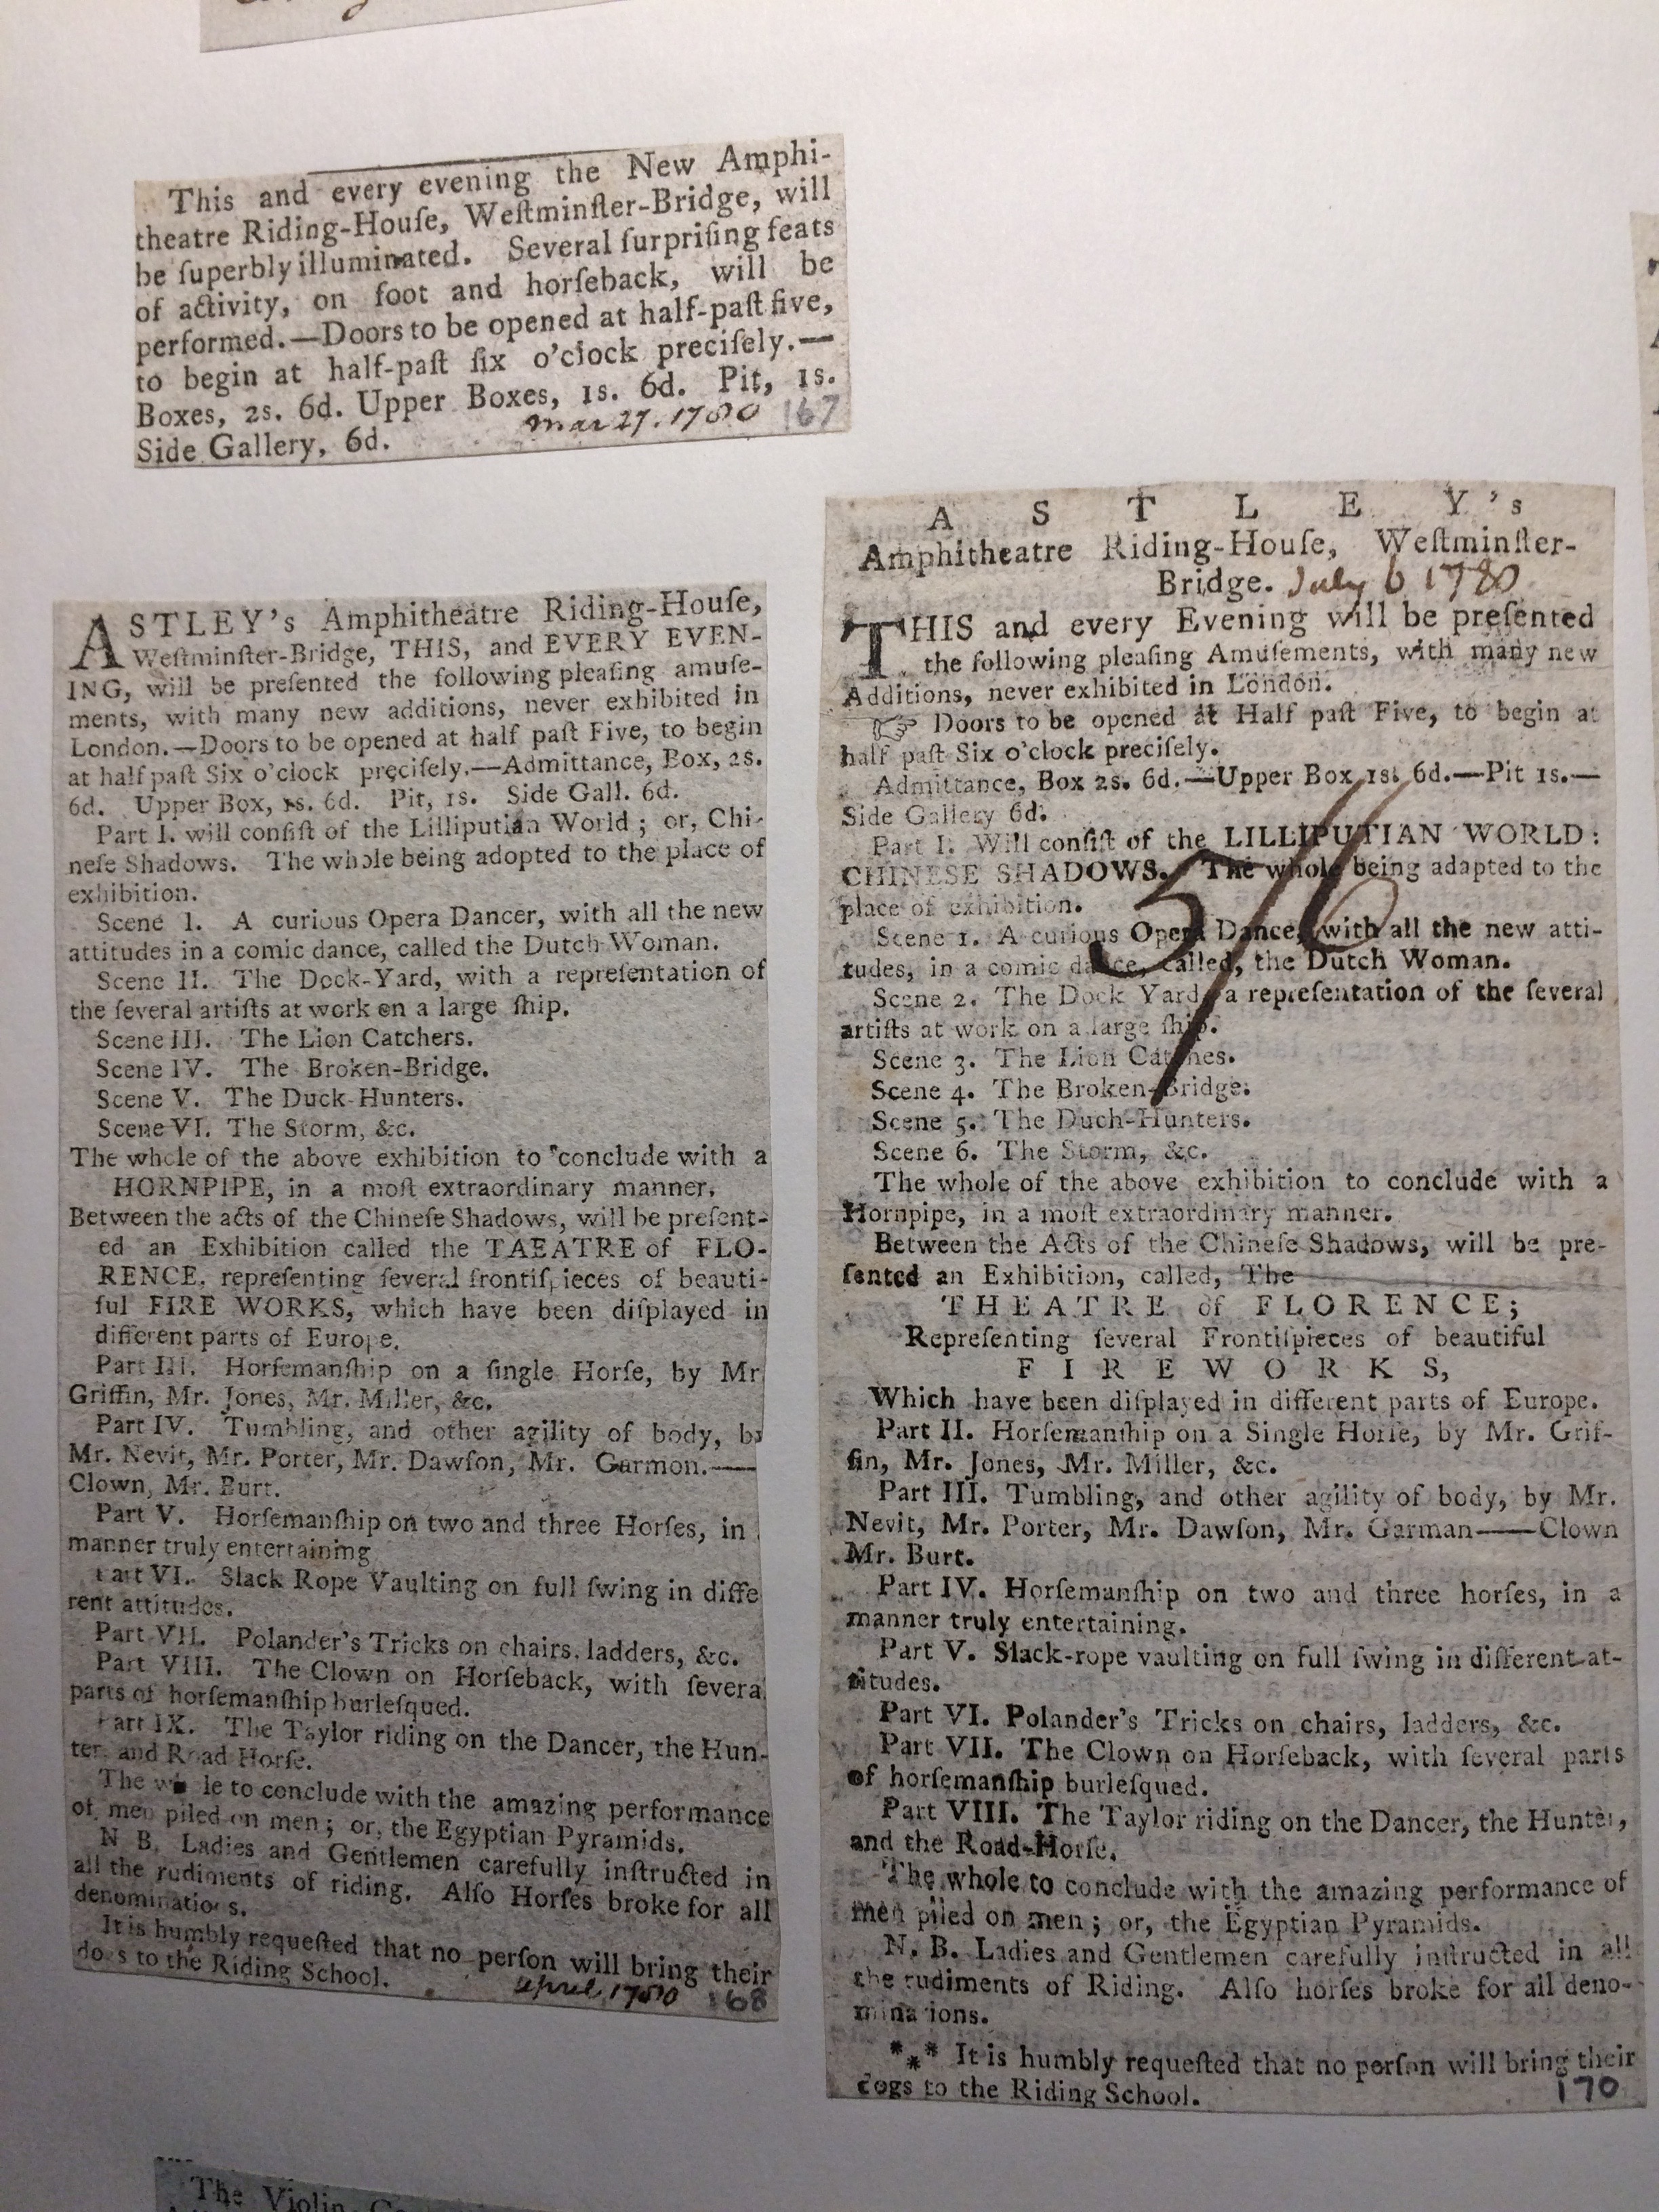 This and every evening the New Amphi-
theatre Riding-Houſe, Weſtminſter-Bridge, will
be ſuperbly illuminated. Several ſurpriſing feats
of activity, on foot and horſeback, will be
performed.—Doors to be opened at half-paſt five,
to begin at half-paſt ſix o'clock preciſely.—
Boxes, 2s. 6d. Upper Boxes, 1s. 6d. Pit, 1s.
Side Gallery, 6d.
Mar 27. 1780 167
ASTLEY's Amphitheatre Riding-Houſe,
Weſtminſter-Bridge, THIS, and EVERY EVEN-
ING, will be preſented the following pleaſing amuſe-
ments, with many new additions, never exhibited in
London.—Doors to be opened at half paſt Five, to begin
at half paſt Six o'clock preciſely.—Admittance, Box, 2s.
6d. Upper Box, 1s. 6d. Pit, 1s. Side Gall. 6d.
Part I. will conſiſt of the Lilliputian World; or, Chi-
neſe Shadows. The whole being adopted to the place of
exhibition.
Scene I. A curious Opera Dancer, with all the new
attitudes in a comic dance, called the Dutch Woman.
Scene II. The Dock-Yard, with a repreſentation of
the ſeveral artiſts at work on a large ſhip.
Scene III. The Lion Catchers.
Scene IV. The Broken-Bridge.
Scene V. The Duck-Hunters.
Scene VI. The Storm, &c.
The whole of the above exhibition to conclude with a
HORNPIPE, in a moſt extraordinary manner.
Between the acts of the Chineſe Shadows, will be preſent-
ed an Exhibition called the TAEATRE of FLO-
RENCE, repreſenting ſeveral frontiſpieces of beauti-
ful FIRE WORKS, which have been diſplayed in
different parts of Europe.
Part III. Horſemanſhip on a ſingle Horſe, by Mr
Griffin, Mr. Jones, Mr. Miller, &c.
Part IV. Tumbling, and other agility of body, by
Mr. Nevit, Mr. Porter, Mr. Dawſon, Mr. Garmon.——
Clown, Mr. Burt.
Part V. Horſemanſhip on two and three Horſes, in
manner truly entertaining
Part VI. Slack Rope Vaulting on full ſwing in diffe
rent attitudes.
Part VII. Polander's Tricks on chairs, ladders, &c.
Part VIII. The Clown on Horſeback, with ſevera
parts of horſemanſhip burleſqued.
Part IX. The Taylor riding on the Dancer, the Hun-
ter, and Road Horſe.
The whole to conclude with the amazing performance
of men piled on men; or, the Egyptian Pyramids.
N. B. Ladies and Gentlemen carefully inſtructed in
all the rudiments of riding. Alſo Horſes broke for all
denominations.
It is humbly requeſted that no perſon will bring their
dogs to the Riding School.
April, 1780 168
ASTLEY's
Amphitheatre Riding-Houſe, Weſtminſter-
Bridge. July 6 1780
THIS and every Evening will be preſented
the following pleaſing Amuſements, with many new
Additions, never exhibited in London.
☞ Doors to be opened at Half paſt Five, to begin at
half paſt Six o'clock preciſely.
Admittance, Box 2s. 6d.—Upper Box 1s. 6d.—Pit 1s.—
Side Gallery 6d.
Part I. Will conſiſt of the LILLIPUTIAN WORLD:
CHINESE SHADOWS. The whole being adapted to the
place of exhibition.
Scene 1. A curious Opera Dance, with all the new atti-
tudes, in a comic dance, called, the Dutch Woman.
Scene 2. The Dock Yard, a repreſentation of the ſeveral
artiſts at work on a large ſhip.
Scene 3. The Lion Catches.
Scene 4. The Broken-Bridge.
Scene 5. The Duch-Hunters.
Scene 6. The Storm, &c.
The whole of the above exhibition to conclude with a
Hornpipe, in a moſt extraordinary manner.
Between the Acts of the Chineſe Shadows, will be pre-
ſented an Exhibition, called, The
THEATRE of FLORENCE;
Repreſenting ſeveral Frontiſpieces of beautiful
FIREWORKS,
Which have been diſplayed in different parts of Europe.
Part II. Horſemanſhip on a Single Horſe, by Mr. Grif-
fin, Mr. Jones, Mr. Miller, &c.
Part III. Tumbling, and other agility of body, by Mr.
Nevit, Mr. Porter, Mr. Dawſon, Mr. Garman——Clown
Mr. Burt.
Part IV. Horſemanſhip on two and three horſes, in a
manner truly entertaining.
Part V. Slack-rope vaulting on full ſwing in different at-
titudes.
Part VI. Polander's Tricks on chairs, ladders, &c.
Part VII. The Clown on Horſeback, with ſeveral parts
of horſemanſhip burleſqued.
Part VIII. The Taylor riding on the Dancer, the Hunter,
and the Road-Horſe.
The whole to conclude with the amazing performance of
men piled on men; or, the Egyptian Pyramids.
N. B. Ladies and Gentlemen carefully inſtructed in all
the rudiments of Riding. Alſo horſes broke for all deno-
minations.
*** It is humbly requeſted that no perſon will bring their
dogs to the Riding School.
170
The Violin